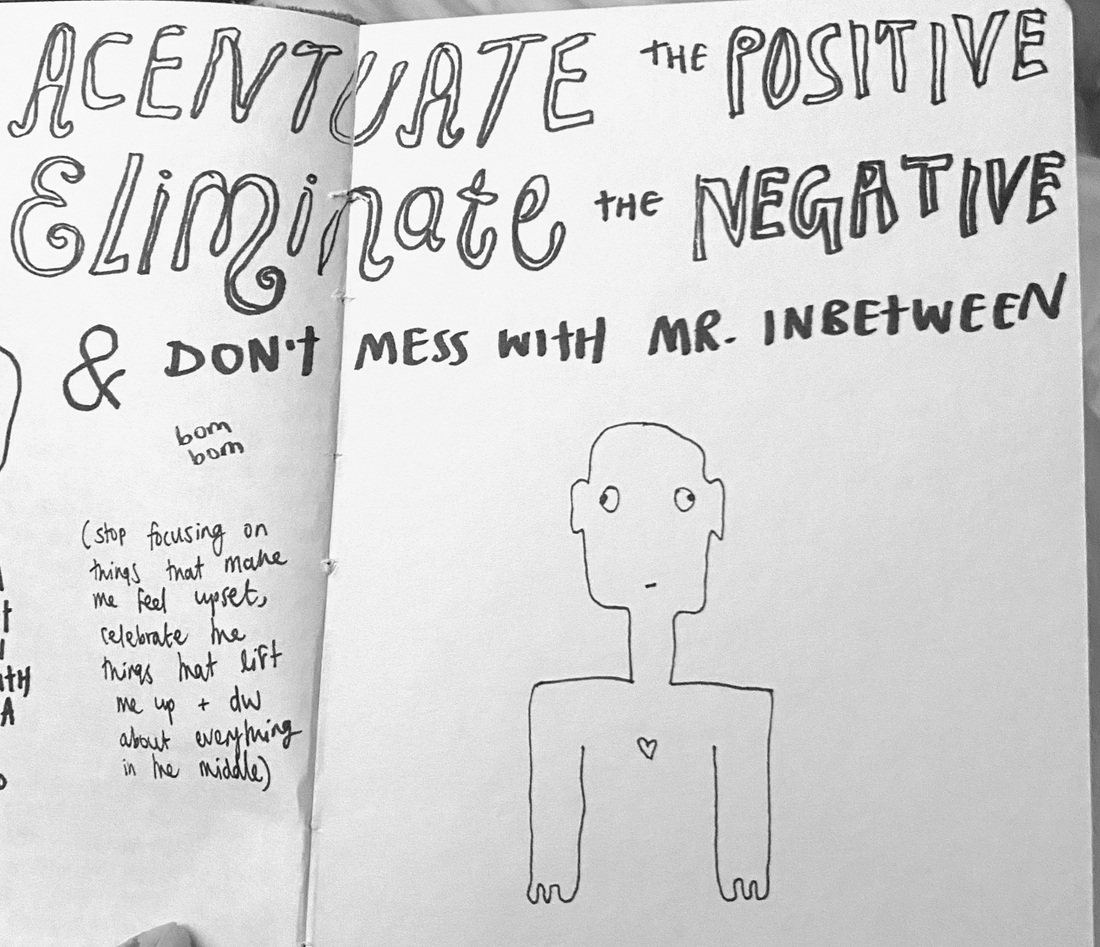 ACENTUATE THE POSITIVE
ELiminate THE NEGATIVE
& DON'T MESS WITH MR. INBETWEEN
bom
bom
(stop focusing on
things that make
me feel upset,
celebrate the
things that lift
me up + dw
about everything
in the middle)